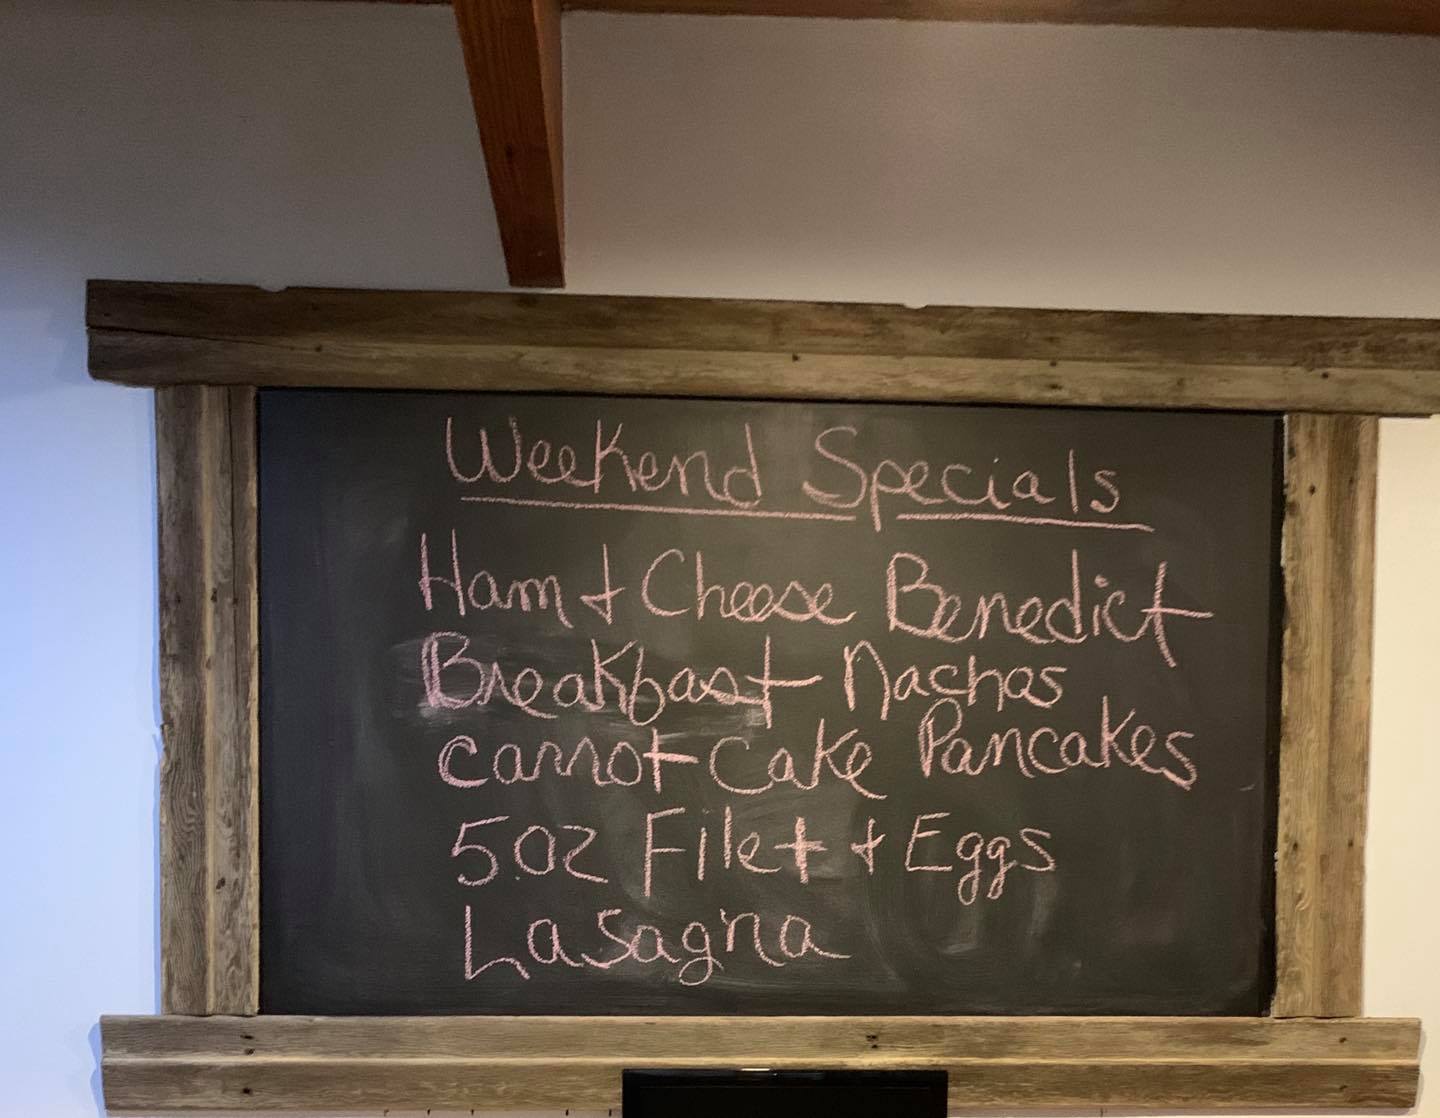 Weekend Specials
Ham + Cheese Benedict
Breakfast Nachos
Carrot Cake Pancakes
5oz Filet + Eggs
Lasagna